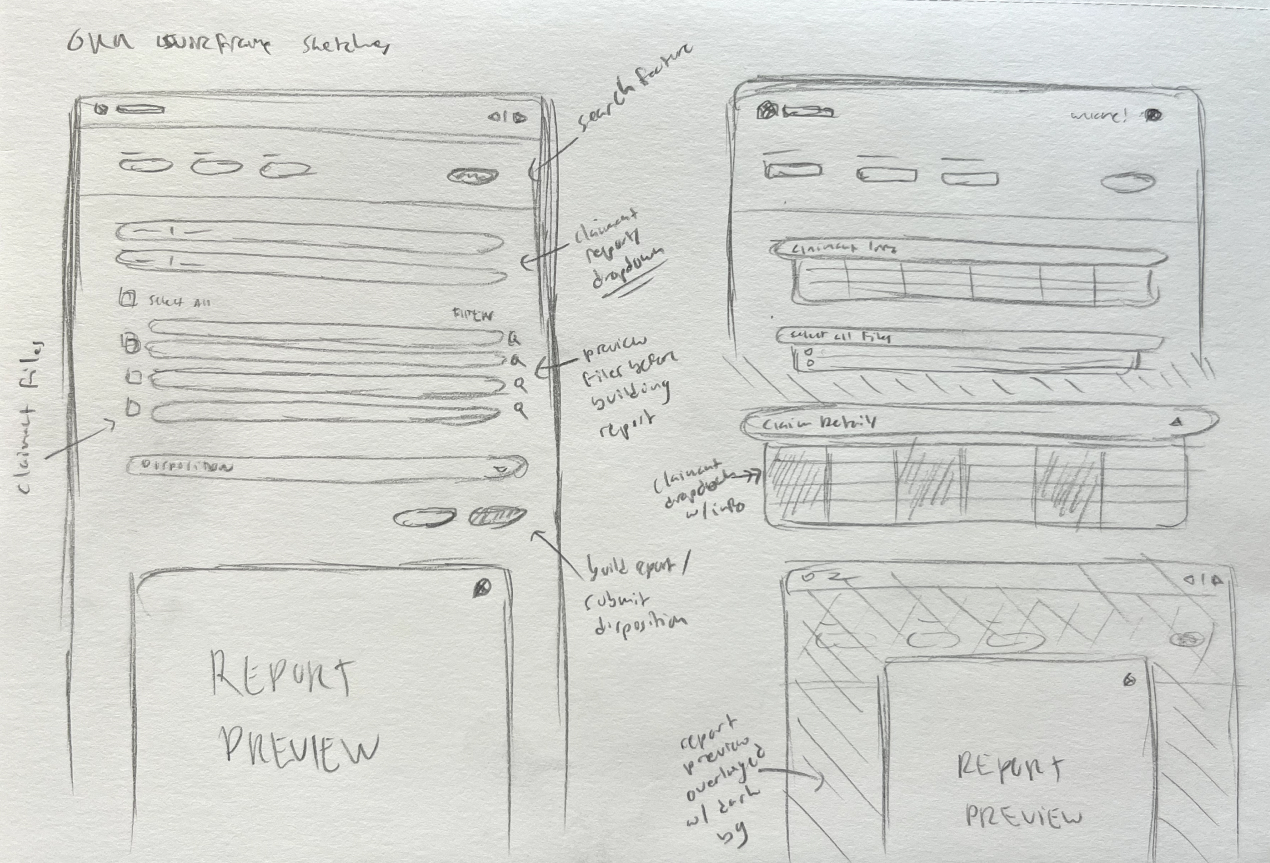 wireframe sketches
search feature
claimant
report/
dropdown
Select All
preview
files before
building
report
claimant files
DISPOSITION
build report/
submit
disposition
REPORT
PREVIEW
claimant info
select all files
Claim Detail
claimant
dropdown
w/ info
report
preview
overlayed
w/ dark
bg
REPORT
PREVIEW